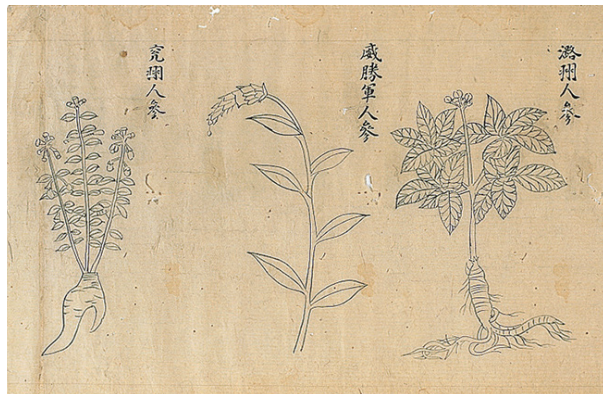 潞州人參
威勝軍人參
兗州人參